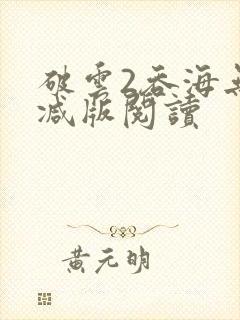 破雲2吞海無
減版閱讀
黃元明